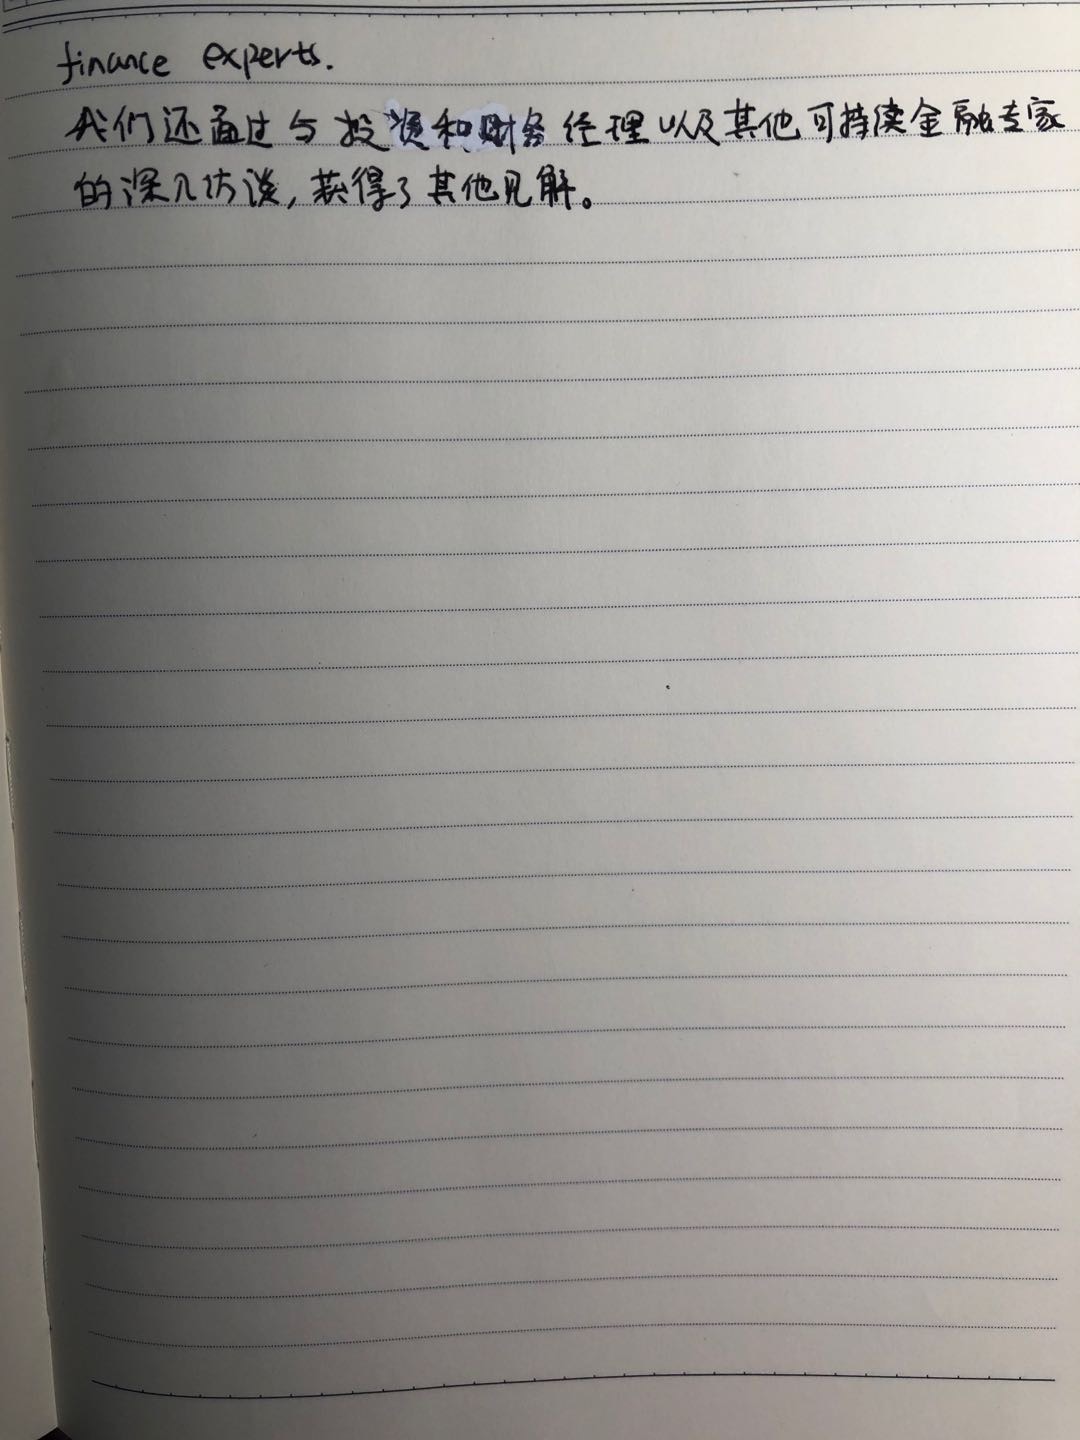 finance experts.
我们还通过与投资和财务经理以及其他可持续金融专家
的深入访谈,获得了其他见解。